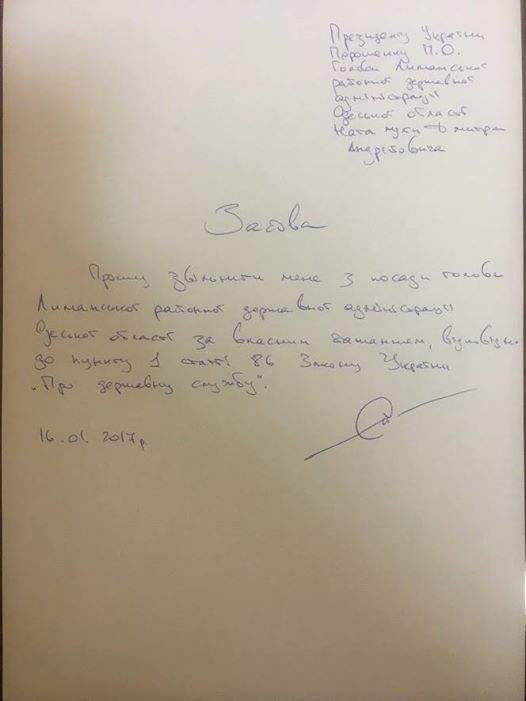 Президенту України
Порошенку П.О.
Голови Лиманської
районної державної
адміністрації
Одеської області
Дмитра
Андрійовича
Заява
Прошу звільнити мене з посади голови
Лиманської районної державної адміністрації
Одеської області за власним бажанням, відповідно
до пункту 1 статті 86 Закону України
"Про державну службу".
16.01.2017р